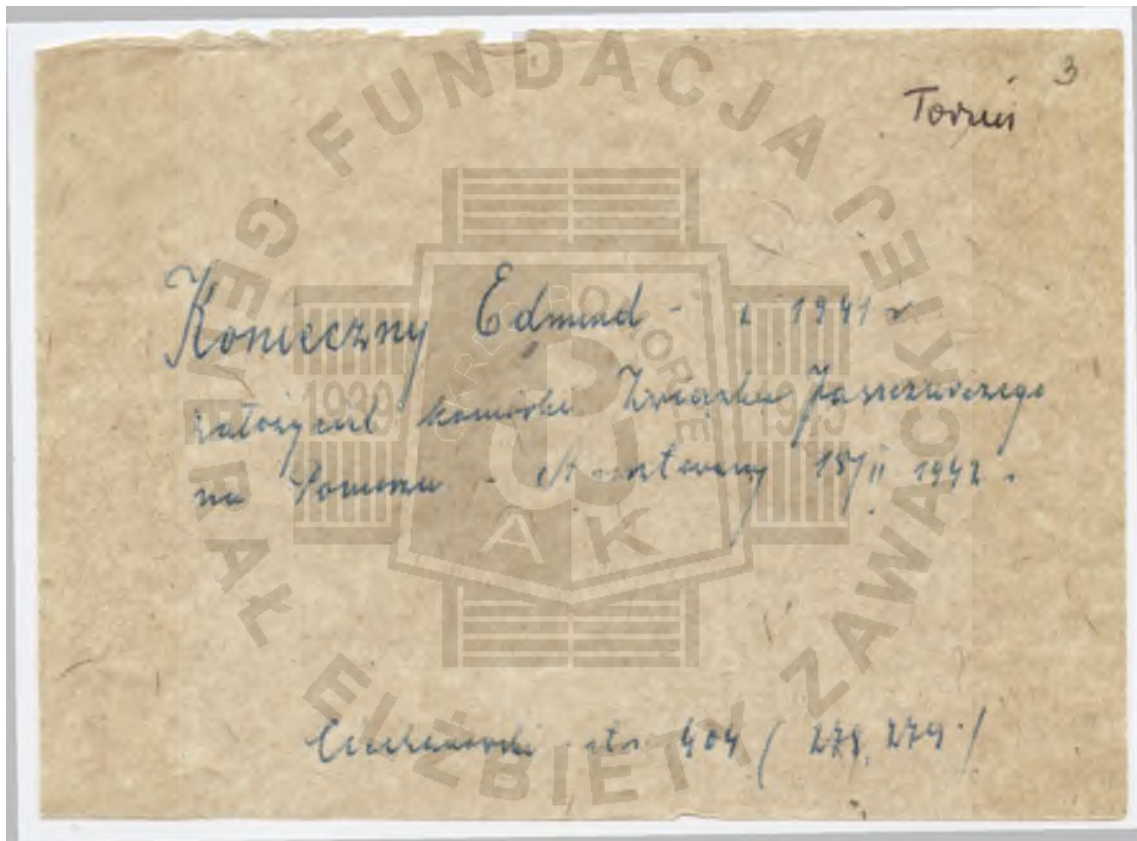 3
Toruń
Konieczny Edmund - w 1941 r
założyciel komórki Związku Jaszczurczego
na Pomorzu - Aresztowany 15/II 1942.
Ciechanowski str 404 ( 278, 279 /
FUNDACJA GENERAŁ ELŻBIETY ZAWACKIEJ
OKRĘG POMORZE
1939 1945
AK